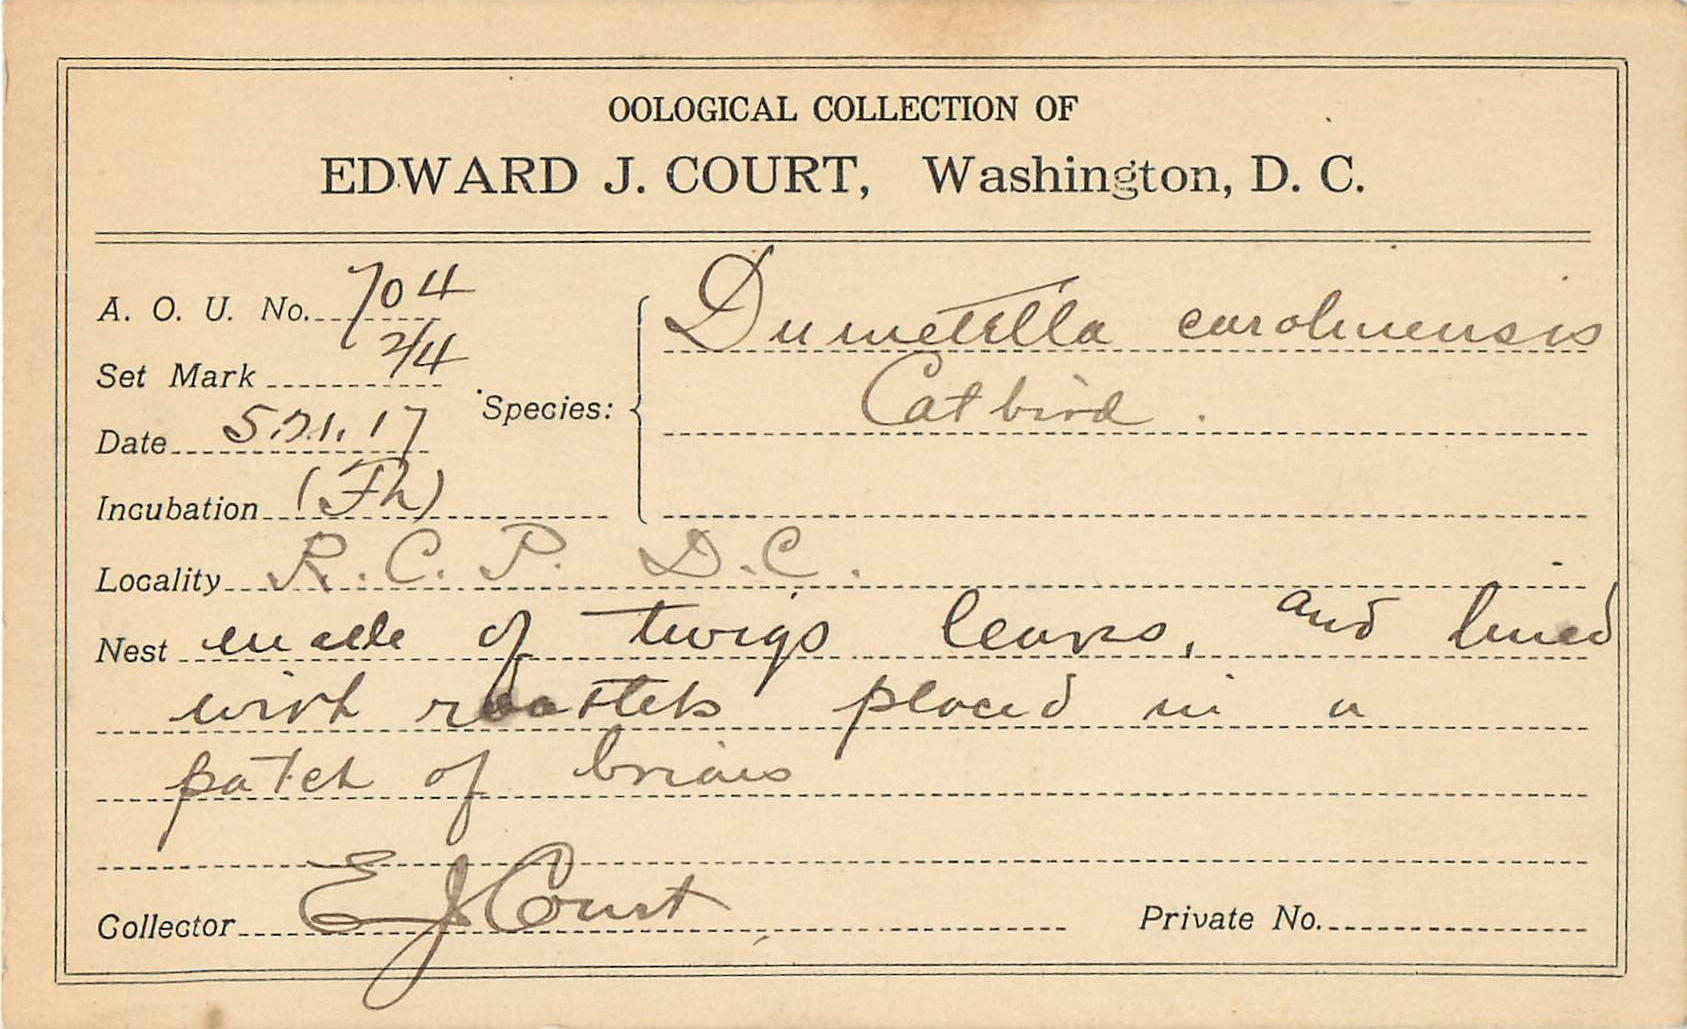 OOLOGICAL COLLECTION OF
EDWARD J. COURT, Washington, D. C.
A. O. U. No. 704
Set Mark 2/4
Date 5.21.17
Species: Dumetella carolinensis
Catbird.
Incubation (Fh)
Locality R. C. P. D. C.
Nest made of twigs leaves, and lined
with rootlets placed in a
patch of briars
Collector E J Court
Private No.